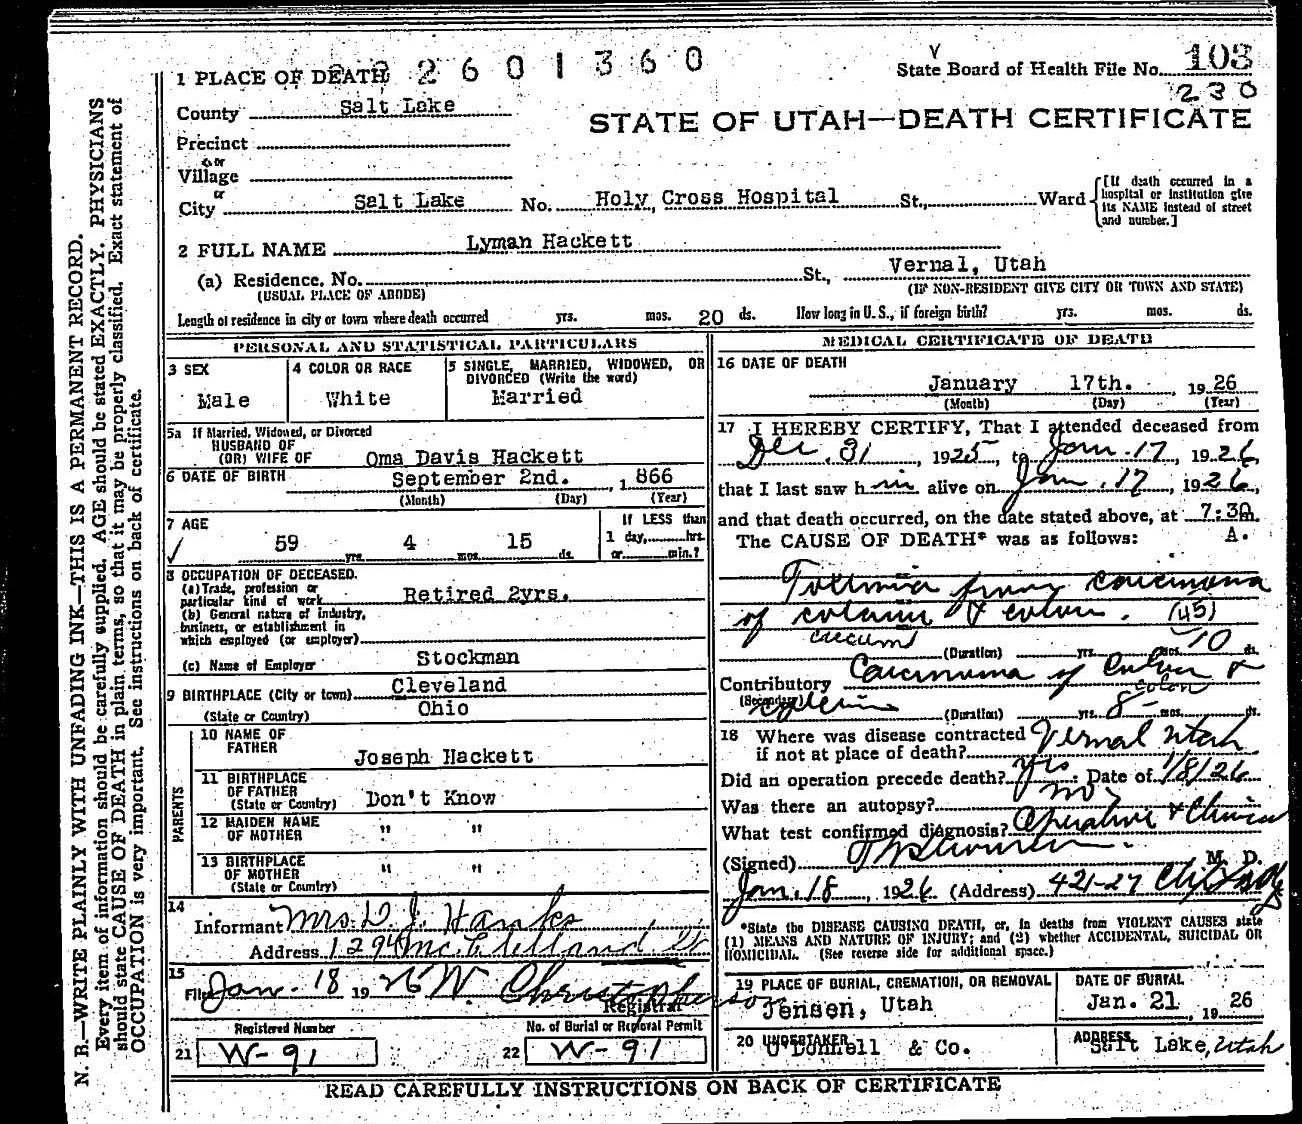 2601360
1 PLACE OF DEATH
State Board of Health File No. 103
230
County Salt Lake
STATE OF UTAH—DEATH CERTIFICATE
Precinct
or
Village
or
City Salt Lake No. Holy Cross Hospital St., Ward
[If death occurred in a
hospital or institution give
its NAME instead of street
and number.]
2 FULL NAME Lyman Hackett
(a) Residence, No. St., Vernal, Utah
(USUAL PLACE OF ABODE) (IF NON-RESIDENT GIVE CITY OR TOWN AND STATE)
Length of residence in city or town where death occurred yrs. mos. 20 ds. How long in U. S., if foreign birth? yrs. mos. ds.
PERSONAL AND STATISTICAL PARTICULARS
3 SEX
Male
4 COLOR OR RACE
White
5 SINGLE, MARRIED, WIDOWED, OR
DIVORCED (Write the word)
Married
5a If Married, Widowed, or Divorced
HUSBAND OF
(OR) WIFE OF Oma Davis Hackett
6 DATE OF BIRTH September 2nd. , 1 866
(Month) (Day) (Year)
7 AGE
59 yrs. 4 mos. 15 ds.
If LESS than
1 day, hrs.
or min.?
8 OCCUPATION OF DECEASED.
(a) Trade, profession or
particular kind of work Retired 2yrs.
(b) General nature of industry,
business, or establishment in
which employed (or employer)
(c) Name of Employer Stockman
9 BIRTHPLACE (City or town) Cleveland
(State or Country) Ohio
PARENTS
10 NAME OF
FATHER Joseph Hackett
11 BIRTHPLACE
OF FATHER
(State or Country) Don't Know
12 MAIDEN NAME
OF MOTHER " "
13 BIRTHPLACE
OF MOTHER " "
(State or Country)
14
Informant Mrs. D. J. Hanks
Address 1294 McClelland St
15
Filed Jan. 18 1926 W. Christopherson
Registrar
Registered Number
21 W-91
No. of Burial or Removal Permit
22 W-91
MEDICAL CERTIFICATE OF DEATH
16 DATE OF DEATH
January 17th. , 1926
(Month) (Day) (Year)
17 I HEREBY CERTIFY, That I attended deceased from
Dec. 31, 1925, to Jan. 17, 1926,
that I last saw him alive on Jan. 17, 1926,
and that death occurred, on the date stated above, at 7:30 m.
The CAUSE OF DEATH* was as follows: A.
from carcinoma
of & colon. (45)
cecum
(Duration) yrs. mos. 10 ds.
Contributory Carcinoma of &
(Secondary) colon
(Duration) yrs. 8- mos. ds.
18 Where was disease contracted
if not at place of death? Vernal Utah
Did an operation precede death? yes Date of 1/8/26
Was there an autopsy? no
What test confirmed diagnosis? Operative & Clinical
(Signed) M. D.
Jan. 18, 1926 (Address) 421-27
*State the DISEASE CAUSING DEATH, or, in deaths from VIOLENT CAUSES state
(1) MEANS AND NATURE OF INJURY; and (2) whether ACCIDENTAL, SUICIDAL OR
HOMICIDAL. (See reverse side for additional space.)
19 PLACE OF BURIAL, CREMATION, OR REMOVAL
Jensen, Utah
DATE OF BURIAL
Jan. 21, 1926
20 UNDERTAKER
O'Donnell & Co.
ADDRESS
Salt Lake, Utah
READ CAREFULLY INSTRUCTIONS ON BACK OF CERTIFICATE
N. B.—WRITE PLAINLY WITH UNFADING INK—THIS IS A PERMANENT RECORD.
Every item of information should be carefully supplied. AGE should be stated EXACTLY. PHYSICIANS
should state CAUSE OF DEATH in plain terms, so that it may be properly classified. Exact statement of
OCCUPATION is very important. See instructions on back of certificate.